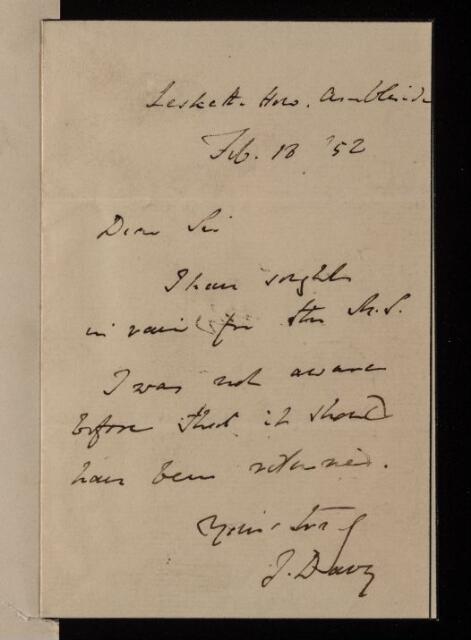 Lesketh How. Ambleside
Feb. 18 '52
Dear Sir
I have sought
in vain for the M.S.
I was not aware
before that it should
have been returned.
Yours truly
J. Davy